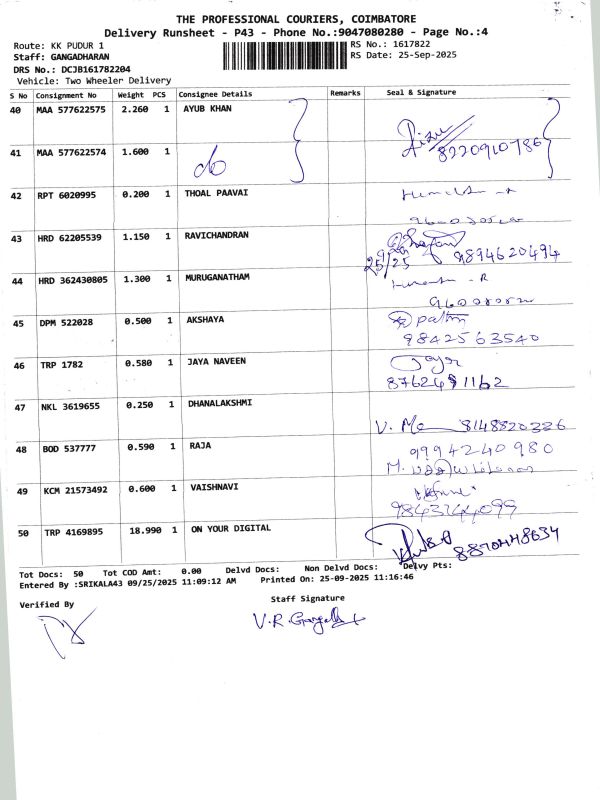 THE PROFESSIONAL COURIERS, COIMBATORE
Delivery Runsheet - P43 - Phone No.:9047080280 - Page No.:4
Route: KK PUDUR 1
RS No.: 1617822
Staff: GANGADHARAN
RS Date: 25-Sep-2025
DRS No.: DCJB161782204
Vehicle: Two Wheeler Delivery
S No Consignment No Weight PCS Consignee Details Remarks Seal & Signature
40 MAA 577622575 2.260 1 AYUB KHAN
8220910786
41 MAA 577622574 1.600 1 do
42 RPT 6020995 0.200 1 THOAL PAAVAI
43 HRD 62205539 1.150 1 RAVICHANDRAN
25/25 9894620494
44 HRD 362430805 1.300 1 MURUGANATHAM
45 DPM 522028 0.500 1 AKSHAYA
9842563540
46 TRP 1782 0.580 1 JAYA NAVEEN
47 NKL 3619655 0.250 1 DHANALAKSHMI
8148820326
48 BOD 537777 0.590 1 RAJA 9994240980
49 KCM 21573492 0.600 1 VAISHNAVI
9843744099
50 TRP 4169895 18.990 1 ON YOUR DIGITAL
Tot Docs: 50 Tot COD Amt: 0.00 Delvd Docs: Non Delvd Docs: Delvy Pts:
Entered By :SRIKALA43 09/25/2025 11:09:12 AM Printed On: 25-09-2025 11:16:46
Verified By Staff Signature